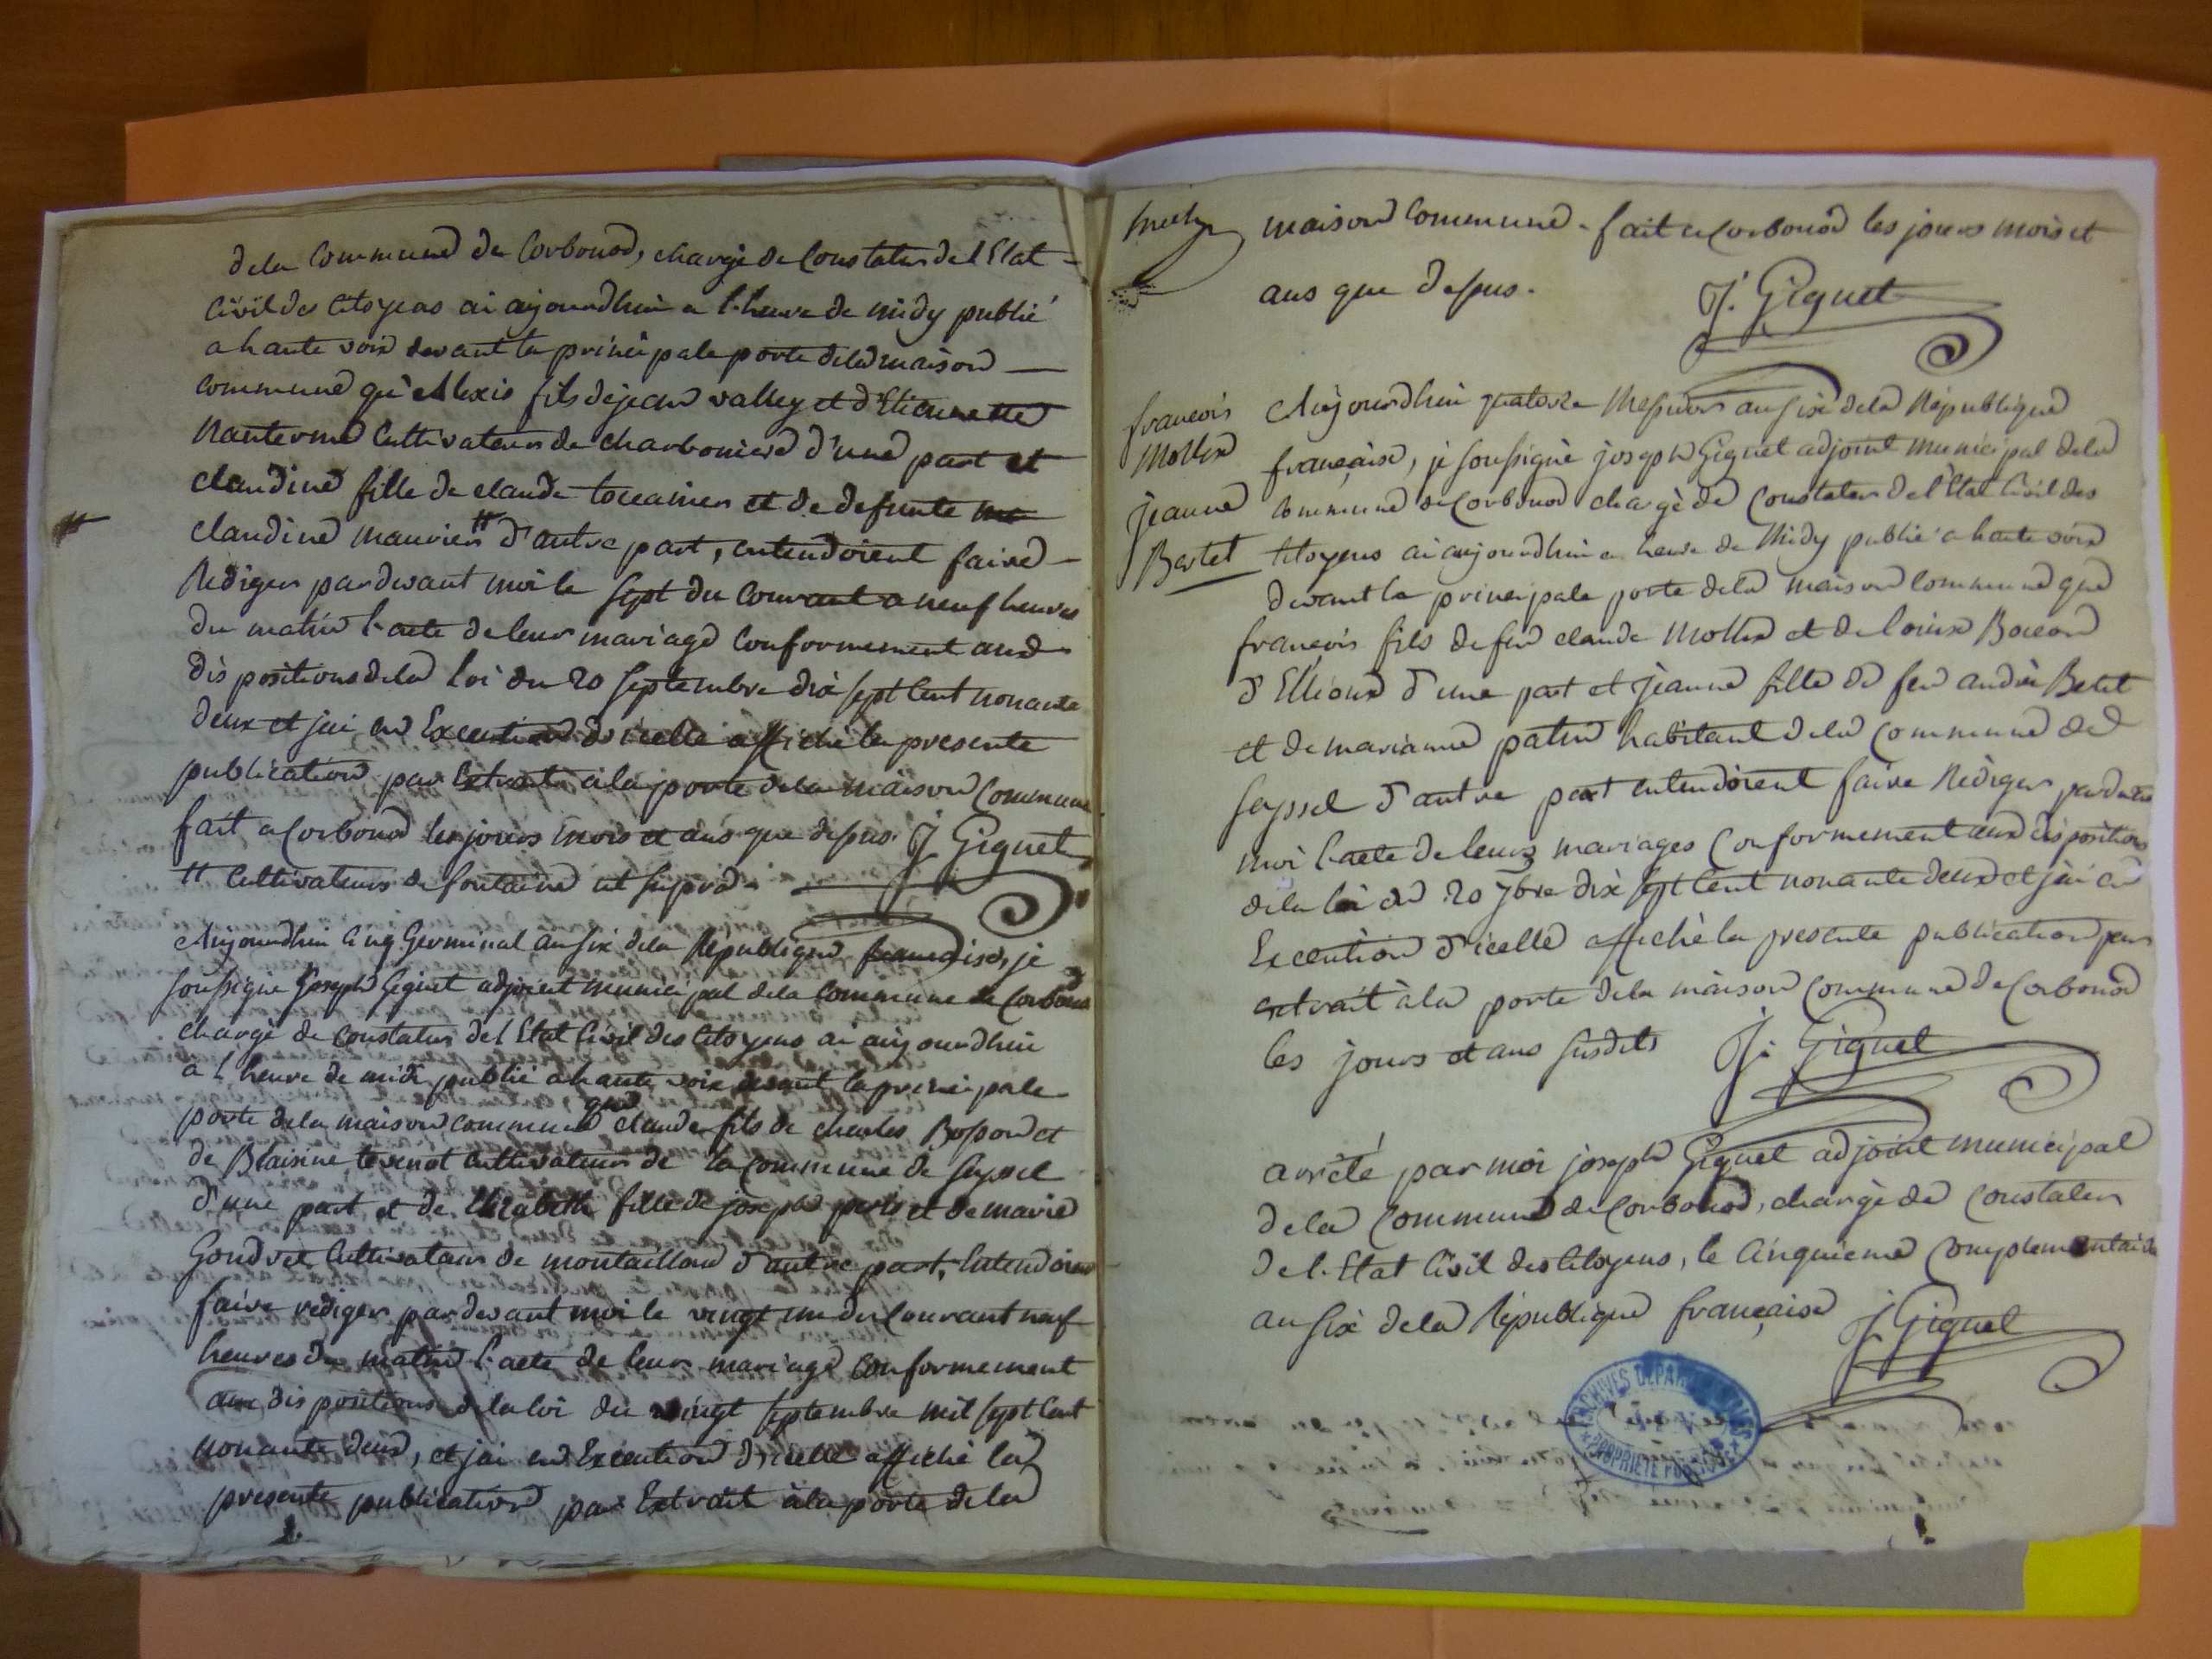 dela Commune de Corbonod, chargé de Constater de l Etat
Civil des Citoyens ai aujourdhui a l'heure de midy publié
a haute voix devant la principale porte dela maison
commune qu'Alexis fils de jean valley et d'Etiennette
Nanterme Cultivateurs de charboniere d'une part et
claudine fille de claude toccanier et de defunte
claudine maurier # d'autre part, entendoient faire
Rediger pardevant moi le sept du Courant a neuf heures
du matin l'acte de leur mariage Conformement aux
dispositions dela Loi du 20 septembre dix sept Cent nonante
deux et jai en Execution d'icelle affiché la presente
publication par Extrait a la porte dela maison Commune
fait a Corbonod les jours mois et ans que dessus. J. Giguet
# Cultivateurs de fontaine ut supra
Aujourdhui Cinq Germinal an six dela Republique française, je
soussigné Joseph Giguet adjoint municipal dela Commune de Corbonod
chargé de Constater de l Etat Civil des Citoyens ai aujourdhui
a l'heure de midi publié a haute voix devant la principale
porte dela maison commune que claude fils de charles Bosson et
de Blaisine tevenot Cultivateurs de la Commune de Seyssel
d'une part et de Elizabeth fille de joseph et de marie
Goudret Cultivateurs de montaillou d'autre part, Entendoient
faire rediger pardevant moi le vingt un du Courant neuf
heures du matin l'acte de leur mariage Conformement
aux dispositions de la loi du vingt septembre mil sept Cent
nonante deux, et jai en Execution d'icelle affiché la
presente publication par Extrait à la porte dela
maison Commune. fait a Corbonod les jours mois et
ans que dessus. J. Giguet
françois
Mollex
jeanne
Bertet
Aujourdhui quatorze Messidor an six dela Republique
française, je soussigné joseph Giguet adjoint municipal dela
Commune de Corbonod chargé de Constater de l'Etat Civil des
Citoyens ai aujourdhui a heure de Midy publié a haute voix
devant la principale porte dela maison Commune que
françois fils de feu claude Mollex et de louise Boccon
d'Ellioux d'une part et jeanne fille de feu andré Betet
et de marianne patin habitant dela Commune de
Seyssel d'autre part entendoient faire Rediger pardevant
moi l'acte de leurs mariages Conformement aux dispositions
dela loi du 20 7bre dix sept Cent nonante deux et jai en
Execution d'icelle affiché la presente publication par
extrait à la porte dela maison Commune de Corbonod
les jours et ans susdits J. Giguet
arrété par moi joseph Giguet adjoint municipal
dela Commune de Corbonod, chargé de Constater
de l'Etat Civil des Citoyens, le Cinquieme Complementaire
an six dela Republique française J Giguet
ARCHIVES DÉPARTEMENTALES
PROPRIÉTÉ PUBLIQUE